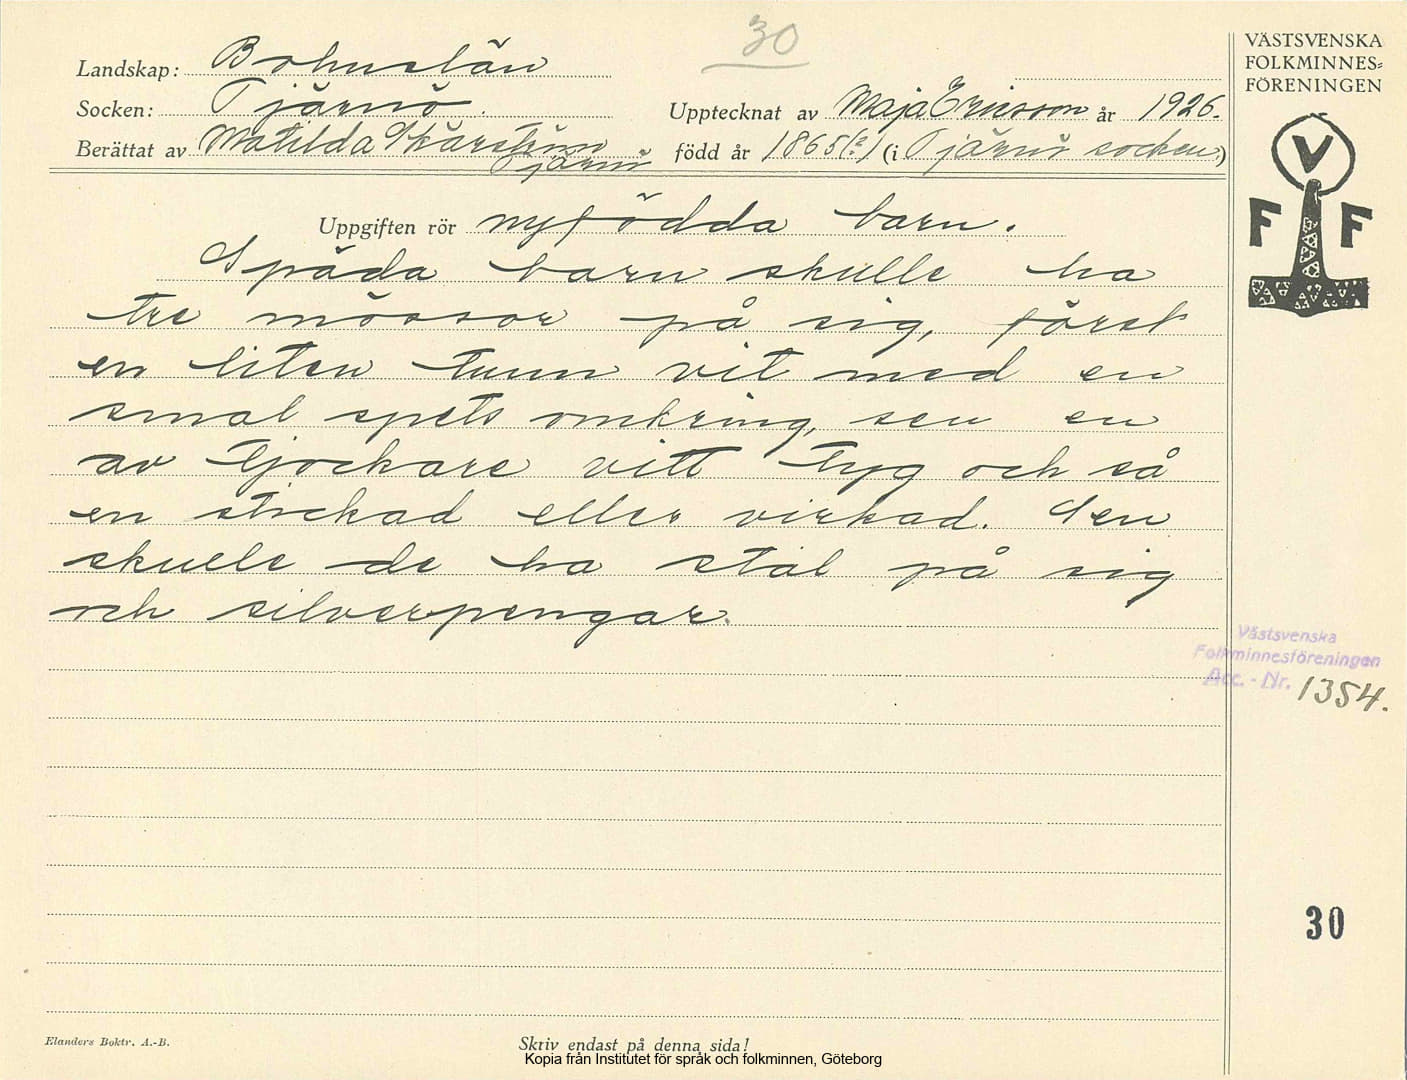 30
VÄSTSVENSKA
FOLKMINNES-
FÖRENINGEN
Landskap: Bohuslän
Socken: Tjärnö. Upptecknat av Maja Ericsson år 1926.
Berättat av Matilda född år 1865(?) (i Tjärnö socken.)
Tjärnö
V
F F
Uppgiften rör nyfödda barn.
Späda barn skulle ha
tre mössor på sig, först
en liten tunn vit med en
smal spets omkring, sen en
av tjockare vitt tyg och så
en stickad eller virkad. Sen
skulle de ha stål på sig
och silverpengar.
Västsvenska
Folkminnesföreningen
Acc.-Nr. 1354.
30
Elanders Boktr. A.-B.
Skriv endast på denna sida!
Kopia från Institutet för språk och folkminnen, Göteborg